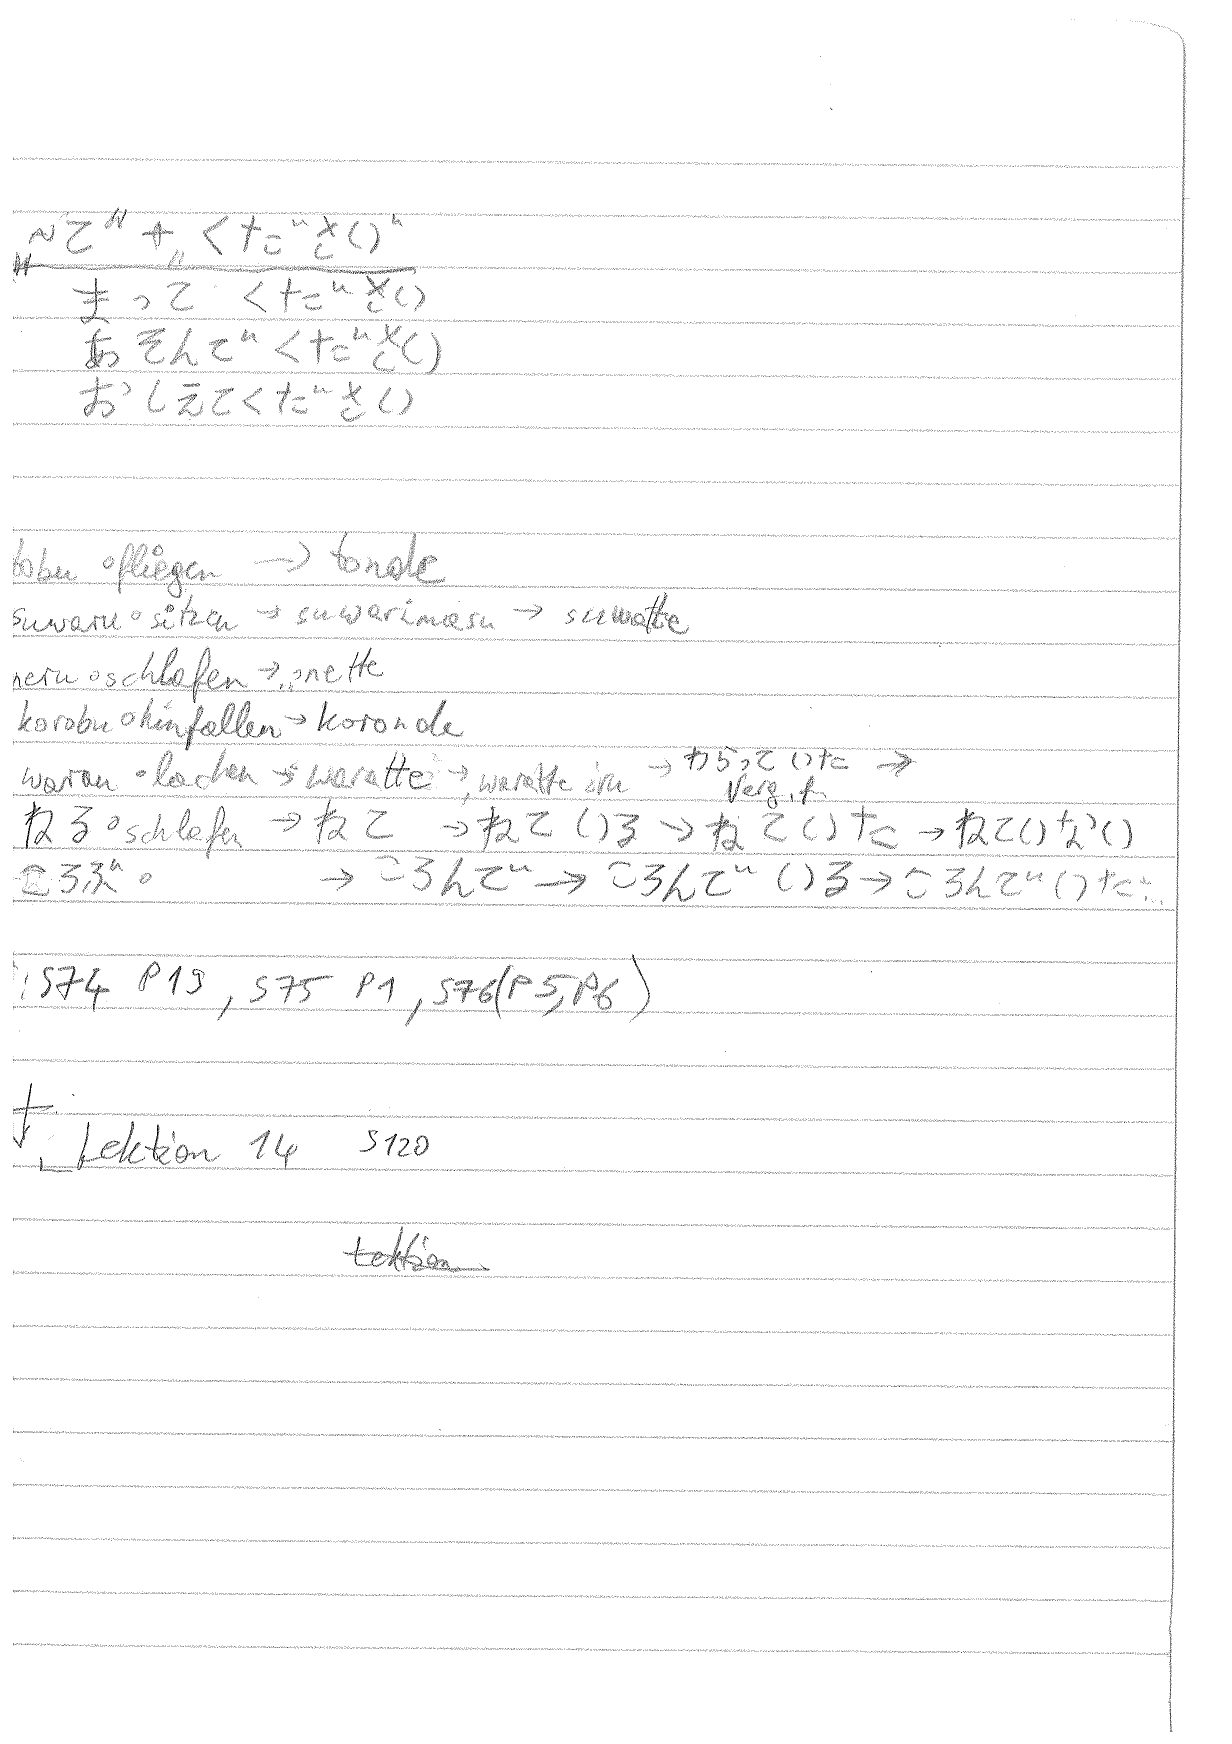 „~て" + „ください"
まって ください
あそんで ください
おしえてください
tobu ∘ fliegen → tonde
suwaru ∘ sitzen → suwarimasu → suwatte
neru ∘ schlafen → nette
korobu ∘ hinfallen → koronde
warau ∘ lachen → waratte → waratte iru → わらっていた →
Verg. f.
ねる ∘ schlafen → ねて → ねている → ねていた → ねていない
ころぶ ∘ → ころんで → ころんでいる → ころんでいた...
: S74 P19, S75 P1, S76(P5, P6)
Lektion 14 S120
Lektion